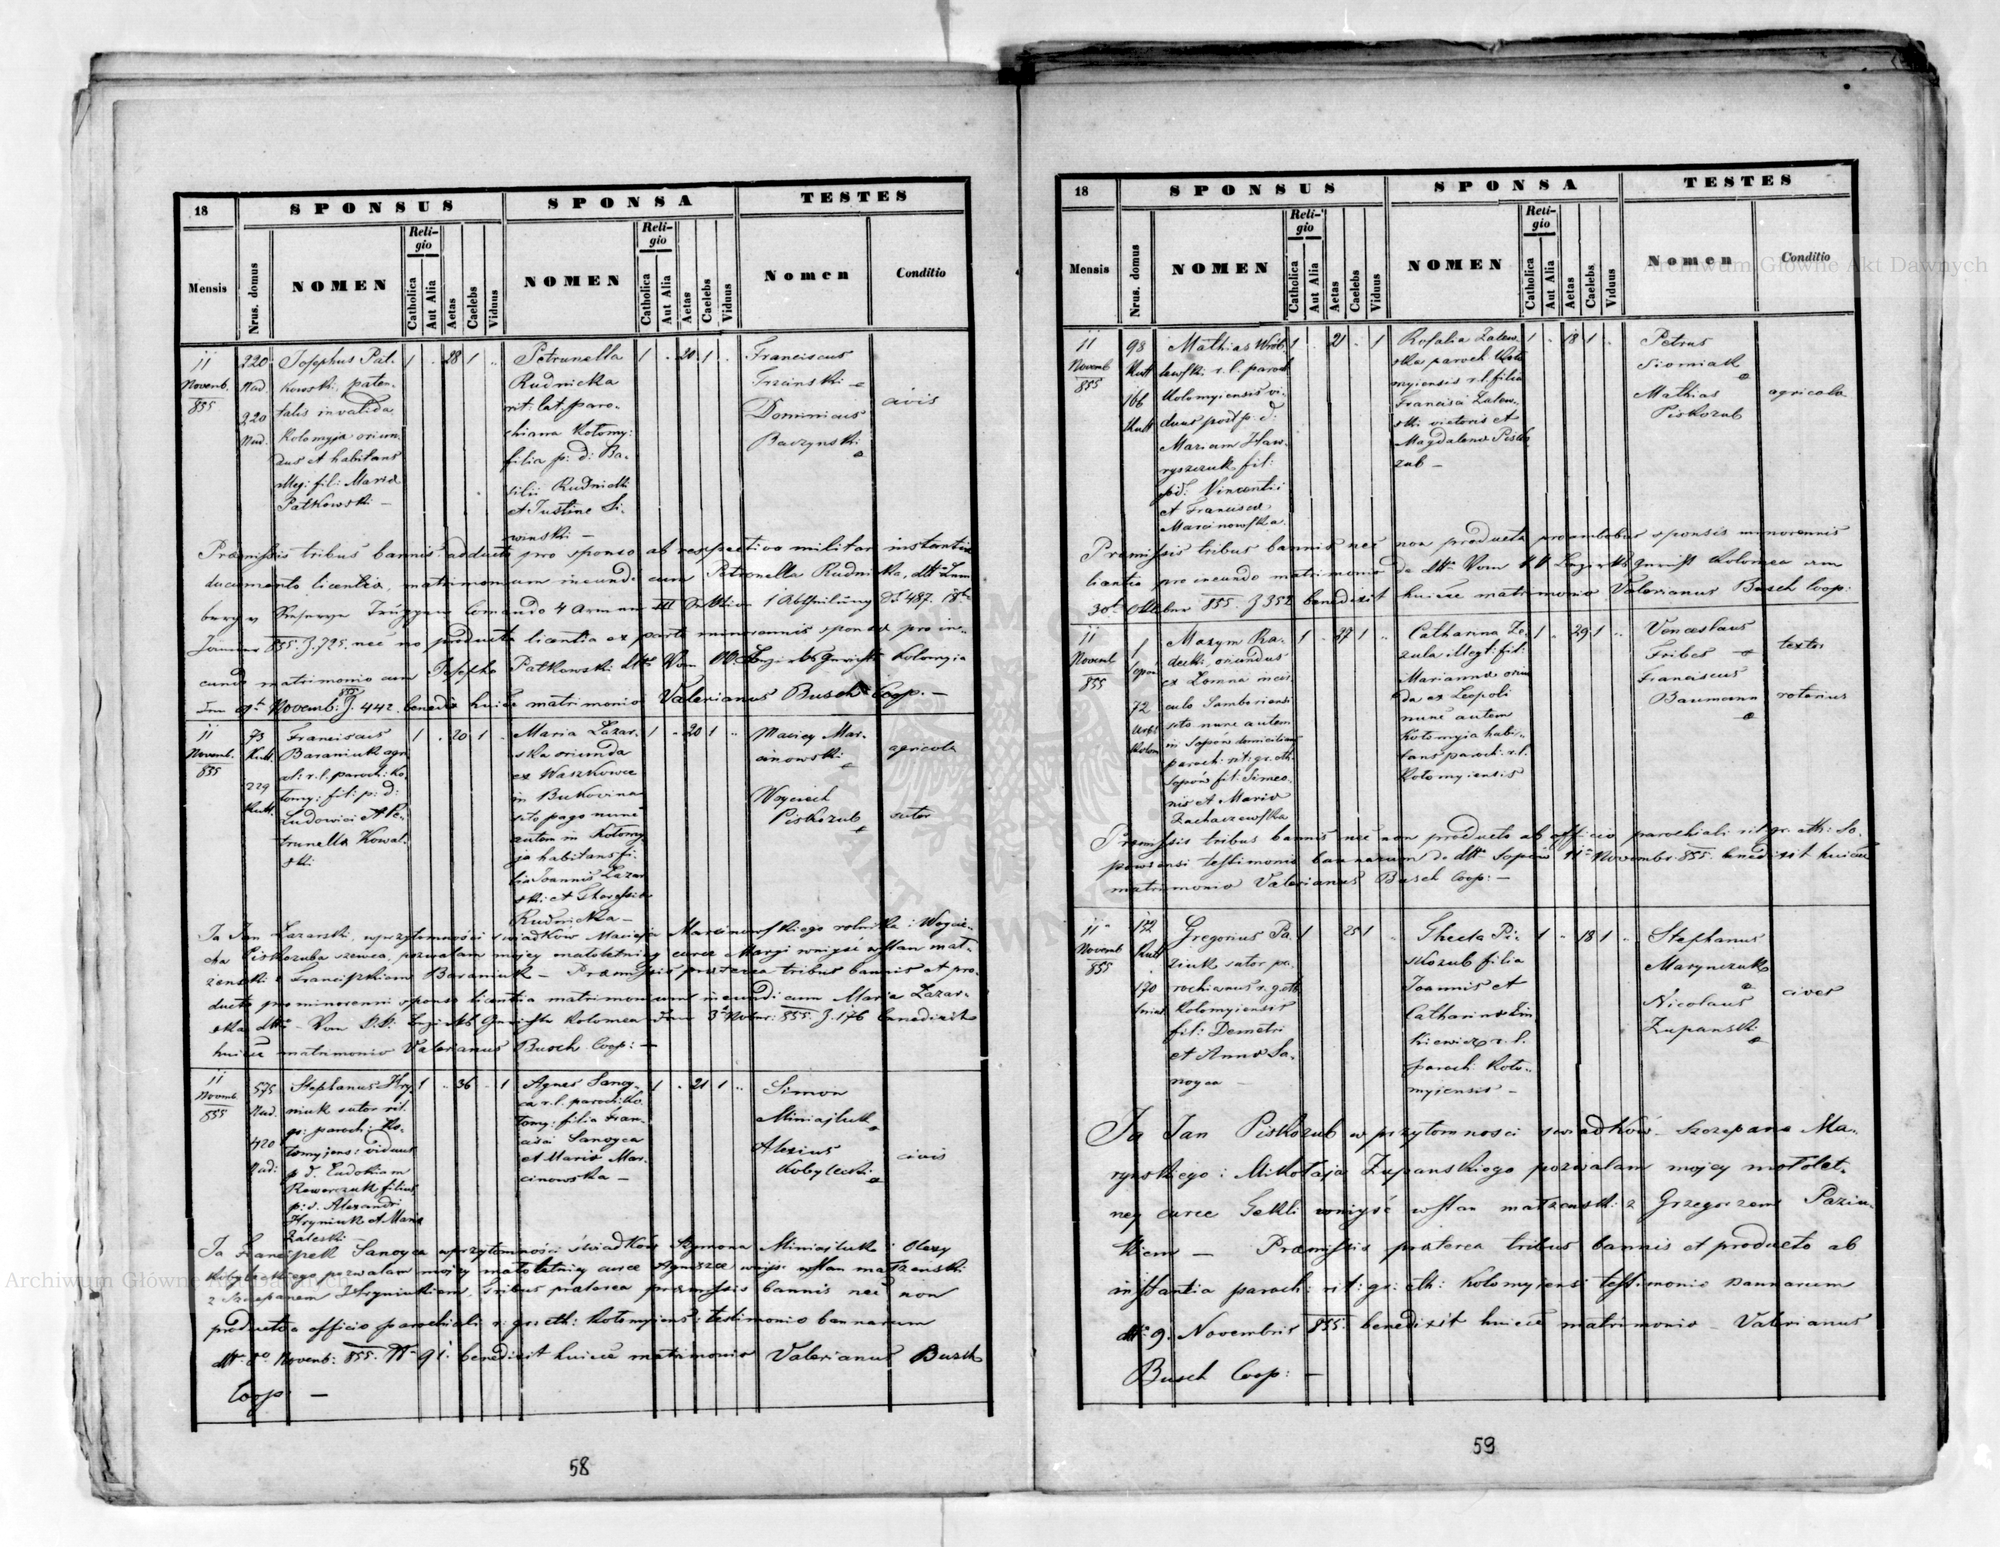 18
SPONSUS
SPONSA
TESTES
Mensis
Nrus. domus
NOMEN
Religio
Catholica
Aut Alia
Aetas
Caelebs
Viduus
NOMEN
Religio
Catholica
Aut Alia
Aetas
Caelebs
Viduus
Nomen
Conditio
11
Novemb.
855
220
Nad.
220
Nad.
Josephus Pat-
kowski, paten-
talis invalida
Kolomyja oriun-
dus et habitans
illeg: fil: Maria
Patkowski —
1 28 1
Petrunella
Rudnicka
rit: lat. paro-
chiana Kołomy:
filia p: d: Ba-
silii Rudnicki
et Justine Si-
winski —
1 20 1
Franciscus
Grzinski
Dominicus
Baczynski
civis
Præmissis tribus bannis adducto pro sponso ab respectivo militar instantia
documento licentia, matrimonium ineundi cum Petronella Rudnicka, dtto Lem
Januar 855. J. 725. nec no producta licentia ex parte minorennis sponsa pro in-
cundo matrimonio cum Josepho Patkowski dtto Vom Bezirksgericht Kolomyia
Novemb: 855 J. 442. benedix huice matrimonio Valerianus Busch Coop. —
11
Novemb.
855
73
Kutt.
229
Kutt.
Franciscus
Baraniuk agri
col: r. l. paroch: Ko-
lomy: fil: p: d:
Ludovici et Pe-
trunella Kowal-
ski
1 20 1
Maria Lazar-
ska oriunda
ex Waszkowce
in Bukovina
sito pago nunc
autem in Kołomy-
ja habitans fi-
lia Joannis Lazar
ski et Theresia
Rudnicka —
1 20 1
Maciey Mar-
cinowski
Woyciech
Piskozub
agricola
sutor
Ja Jan Lazarski, w przytomności swiadków Macieja Marcinowskiego rolnika i Woycie-
cha Piskozuba szewca, pozwalam mojey małoletniey curce Maryi wniyść w stan mał-
żenski z Franciszkiem Baraniuk — Præmissis præterea tribus bannis et pro-
ducta pro minorenni sponso licentia matrimonium ineundi cum Maria Lazar-
ska dtto — Vom Bezirks Gerichte Kolomea 3 Novbr: 855. J. 176 benedixit
huice matrimonio Valerianus Busch Coop: —
11
Novemb
855
575
Nad.
420
Nad:
Stephanus Hry-
niuk sutor rit.
gr: paroch: Ko-
lomyjens: viduus
p. d. Eudokiam
Rewerzuk filius
p: d. Alexandri
Hryniuk et Maria
Zaleski
1 36 1
Agnes Sanoy-
ca r. l. paroch: Ko-
lomy: filia Fran-
cisci Sanoyca
et Maria Mar-
cinowska —
1 21 1
Simon
Miniajluk
Alexius
Kobylecki
civis
Ja Franciszek Sanoyca w przytomności świadków Szymona Miniajluk i Olexy
Kobyleckiego pozwalam mojey małoletniey curce Agnszce wniyść w stan małżenski
z Szczepanem Hryniukiem, Tribus præterea præmissis bannis nec non
producto officio parochiali r: gr: cth: Kołomyiens: testimonio bannarum
dtto 8o Novemb: 855. N 91. benedixit huice matrimonio Valerianus Busch
Coop: —
58
18
SPONSUS
SPONSA
TESTES
Mensis
Nrus. domus
NOMEN
Religio
Catholica
Aut Alia
Aetas
Caelebs
Viduus
NOMEN
Religio
Catholica
Aut Alia
Aetas
Caelebs
Viduus
Nomen
Conditio
11
Novemb
855
98
Kutt
166
Kutt
Mathias Wrób-
lewski r. l. paroch
Kolomyiensis vi-
duus post p: d:
Mariam Haw-
ryszczuk fil:
p: d: Vincentii
et Francisca
Marcinowska
1 21 1
Rosalia Zalew-
ska paroch Koło
myiensis r. l. filia
Francisci Zalew-
ski victoris et
Magdalena Pisko
zub —
1 18 1
Petrus
Siomiak
Mathias
Piskozub
agricola
Præmissis tribus bannis nec non producta pro ambobus sponsis minorennis
licentia pro ineundo matrimonio de dtto Vom Bezirksgericht Kolomea am
30t Oktober 855. J 352 benedixit huice matrimonio Valerianus Busch Coop:
11
Novemb
855
1
Sopów
72
Urbs
Kolom
Maxym Ra-
decki, oriundus
ex Łomna
culo Samboriensi
sito nunc autem
in Sopów domicilians
paroch: rit: gr: cth.
Sopów fil: Simeo-
nis et Maria
Zachaczewska
1 27 1
Catharina Ze-
zula illegt: fil:
Marianna oriun
da ex Leopoli
nunc autem
Kołomyia habi-
tans paroch: r. l.
Kołomyiensis
1 29 1
Venceslaus
Tribes
Franciscus
Baumann
textor
rotarius
Præmissis tribus bannis nec non producto ab officio parochiali rit: gr: cth: So-
powensi testimonio bannarum de dtto Sopów 11 Novembr 855 benedixit huice
matrimonio Valerianus Busch Coop: —
11
Novemb
855
152
Kutt
170
Gregorius Pa-
ziuk sutor pa-
rochianus r. g. cth
Kolomyiensis
fil: Demetri
et Anna Sa-
noyca —
1 25 1
Thecla Pi-
skozub filia
Joannis et
Catharina Zin
kiewicz r. l.
paroch Koło-
myiensis —
1 18 1
Stephanus
Marynczuk
Nicolaus
Zupanski
cives
Ja Jan Piskozub w przytomnosci swiadków Szczepana Ma-
rynskiego i Mikołaja Zupanskiego pozwalam mojey małolet-
ney curce Tekli wniyść w stan małżenski z Grzegorzem Paziu-
kiem — Præmissis præterea tribus bannis et producto ab
instantia paroch: rit: gr: cth: Kołomyiensi testimonio bannarum
dtto 9. Novembris 855. benedixit huice matrimonio — Valerianus
Busch Coop: —
59
Archiwum Główne Akt Dawnych
Archiwum Główne Akt Dawnych